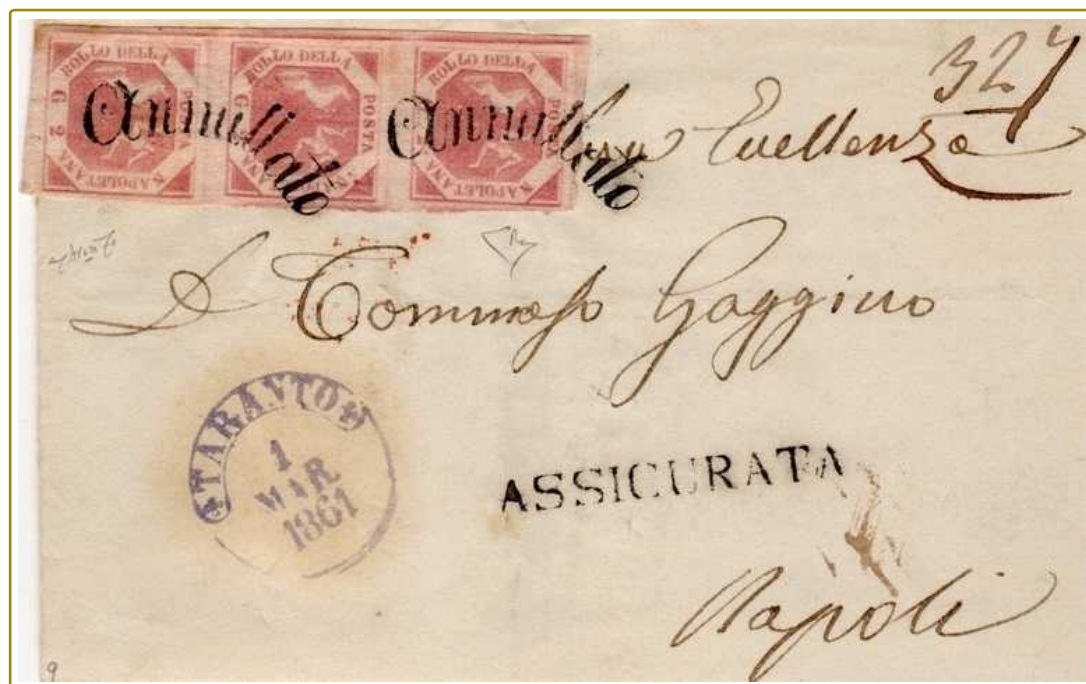 BOLLO DELLA POSTA NAPOLETANA G 2
BOLLO DELLA POSTA NAPOLETANA G
BOLLO DELLA POSTA NAPOLETANA
Annullato
Annullato
327
Eccellenza
D Tommaso Gaggino
TARANTO
1
MAR
1861
ASSICURATA
Napoli
9